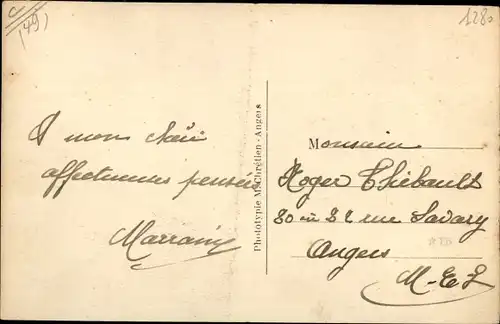 (49)
128
A mon chéri
affectueuses pensées
Marraine
Phototypie M. Chrétien - Angers
Monsieur
Roger Thibault
80 rue Savary
Angers
M-E-L